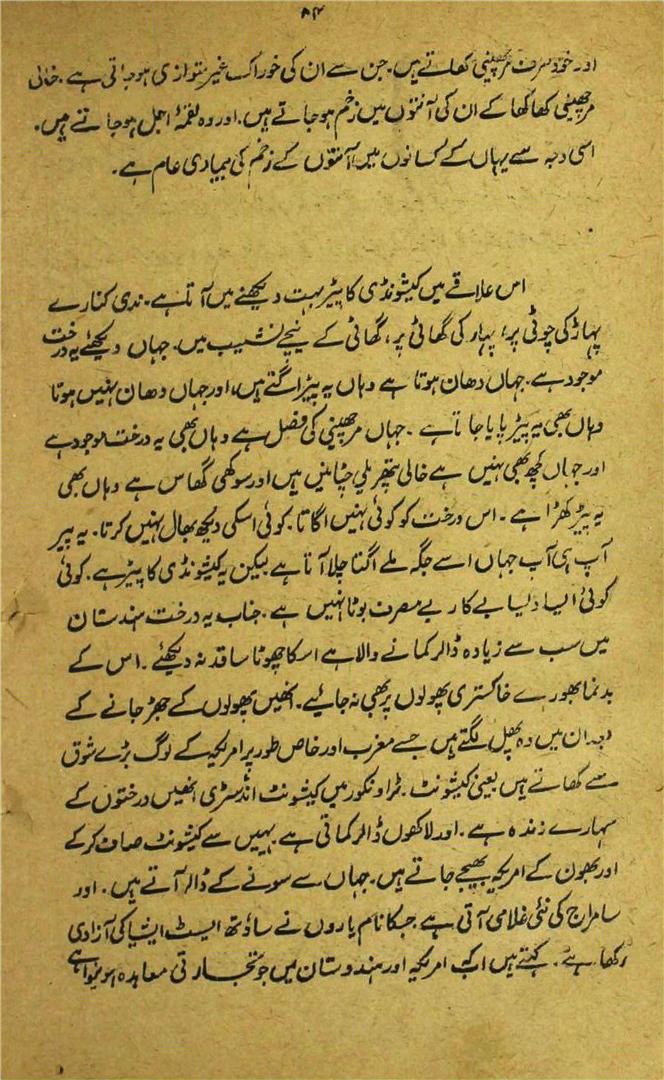 ۵۴
اور خود صرف مرچینی کھاتے ہیں۔ جن سے ان کی خوراک غیر متوازی ہو جاتی ہے۔ خالی
مرچینی کھا کھا کے ان کی آنتوں میں زخم ہو جاتے ہیں۔ اور وہ لقمۂ اجل ہو جاتے ہیں۔
اسی وجہ سے یہاں کے کسانوں میں آنتوں کے زخم کی بیماری عام ہے۔
اس علاقے میں کیشونڈی کا پیڑ بہت دیکھنے میں آتا ہے۔ ندی کنارے
پہاڑ کی چوٹی پر، پہاڑ کی گھاٹی پر، گھاٹی کے نیچے نشیب میں۔ جہاں دیکھئے یہ درخت
موجود ہے۔ جہاں دھان ہوتا ہے وہاں یہ پیڑ اگتے ہیں، اور جہاں دھان نہیں ہوتا
وہاں بھی یہ پیڑ پایا جاتا ہے۔ جہاں مرچینی کی فصل ہے وہاں بھی یہ درخت موجود ہے
اور جہاں کچھ بھی نہیں ہے خالی پتھریلی چٹانیں ہیں اور سوکھی گھاس ہے وہاں بھی
یہ پیڑ کھڑا ہے۔ اس درخت کو کوئی نہیں اگاتا۔ کوئی اسکی دیکھ بھال نہیں کرتا۔ یہ پیڑ
آپ ہی آپ جہاں اسے جگہ ملے اگتا چلا آتا ہے لیکن یہ کیشونڈی کا پیڑ ہے۔ کوئی
کوئی ایسا ویسا بے کار بے مصرف بوٹا نہیں ہے۔ جناب یہ درخت ہندستان
میں سب سے زیادہ ڈالر کمانے والا ہے اسکا چھوٹا سا قد نہ دیکھئے۔ اس کے
بدنما بھورے خاکستری پھولوں پر بھی نہ جائیے۔ انھیں پھولوں کے جھڑ جانے کے
بعد ان میں وہ پھل لگتے ہیں جسے مغرب اور خاص طور پر امریکہ کے لوگ بڑے شوق
سے کھاتے ہیں یعنی کیشونٹ۔ ٹراونکور میں کیشونٹ انڈسٹری انھیں درختوں کے
سہارے زندہ ہے۔ اور لاکھوں ڈالر کماتی ہے یہیں سے کیشونٹ صاف کر کے
اور بھون کے امریکہ بھیجے جاتے ہیں۔ جہاں سے سونے کے ڈالر آتے ہیں۔ اور
سامراج کی نئی غلامی آتی ہے جسکا نام یاروں نے ساؤتھ ایسٹ ایشیا کی آزادی
رکھا ہے۔ کہتے ہیں اب امریکہ اور ہندوستان میں جو تجارتی معاہدہ ہوا ہے